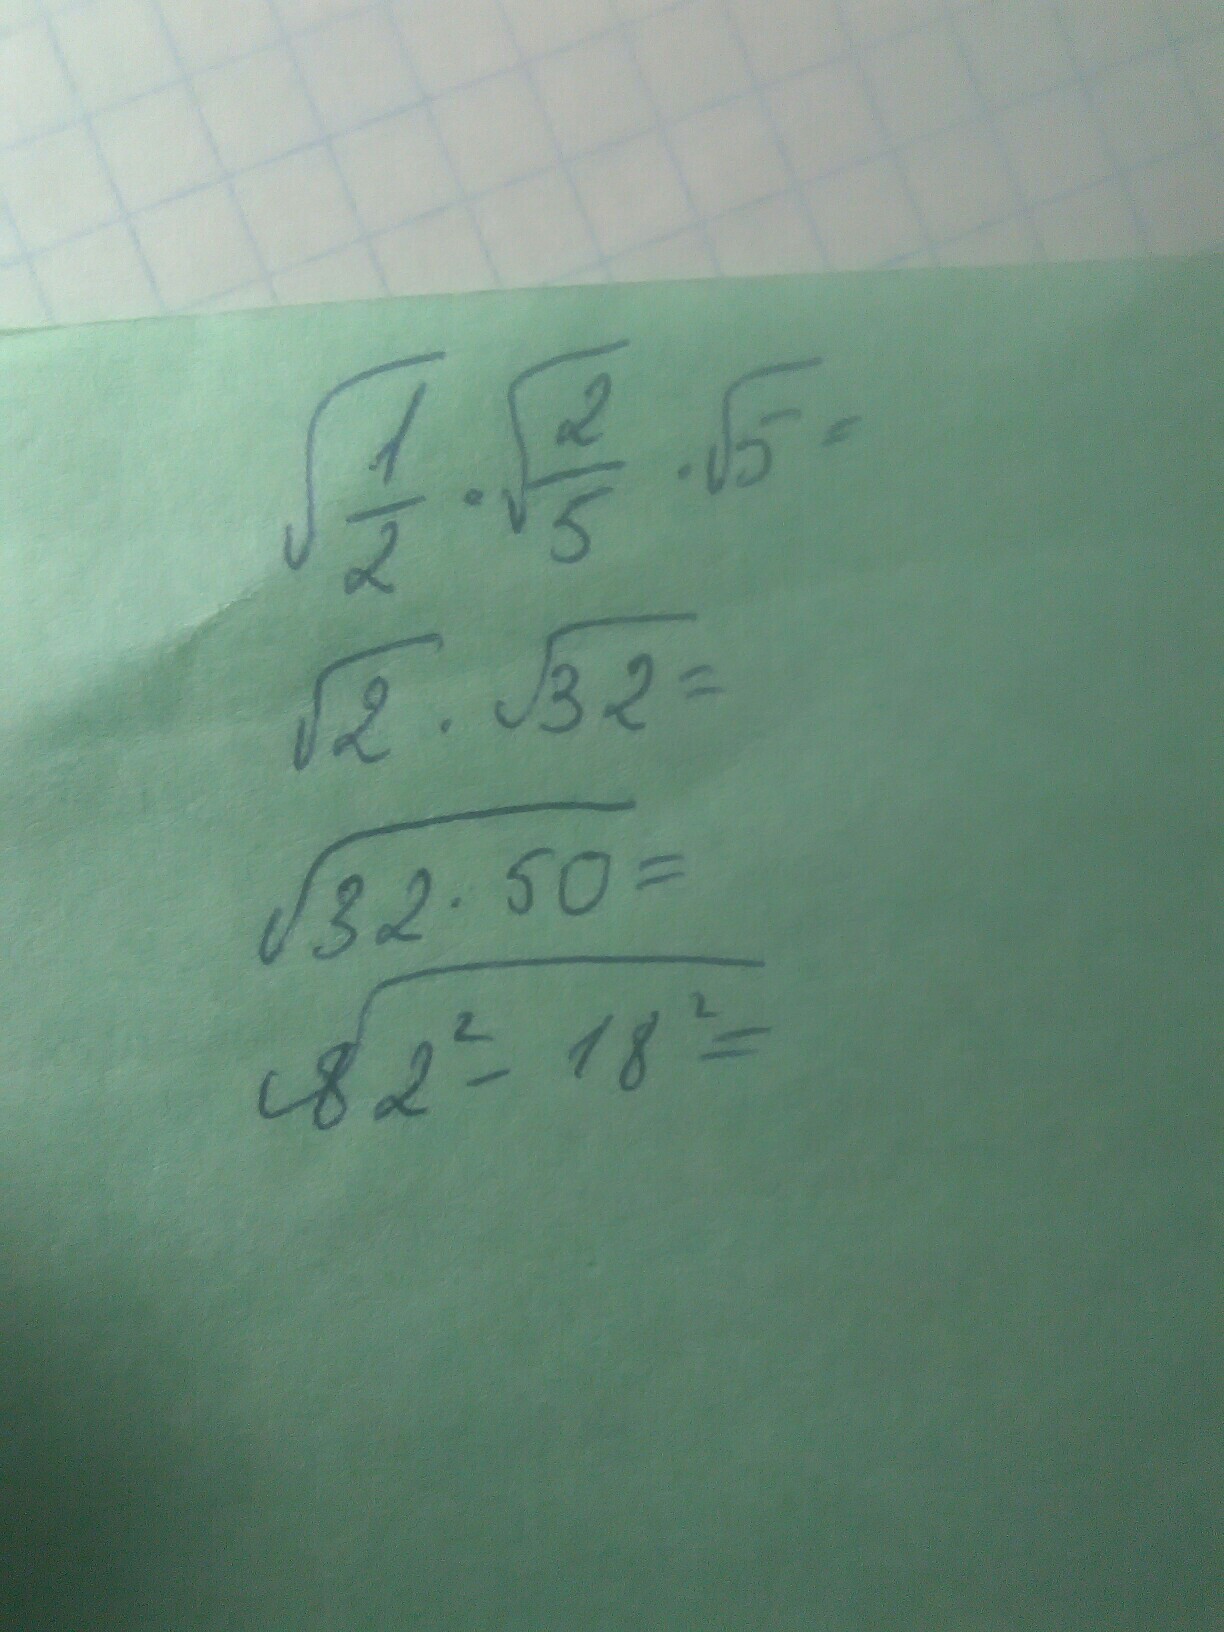 √(1/2) · √(2/5) · √5 =
√2 · √32 =
√(32 · 50) =
√(82² - 18²) =